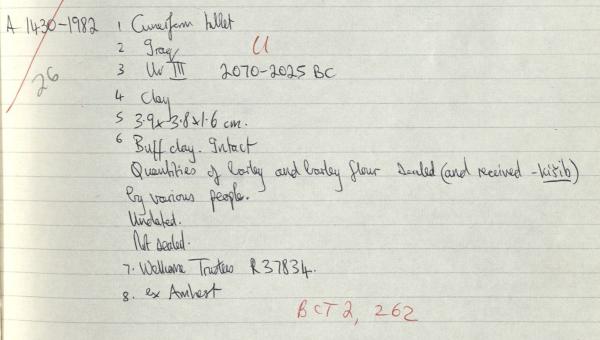 A 1430-1982 1 Cuneiform tablet
2 Iraq U
26 3 Ur III 2070-2025 BC
4 Clay
5 3.9x3.8x1.6 cm.
6 Buff clay. Intact
Quantities of barley and barley flour sealed (and received - kišib)
by various people.
Undated.
Not sealed.
7. Wellcome Trustees R37834.
8. ex Amherst
BCT 2, 262